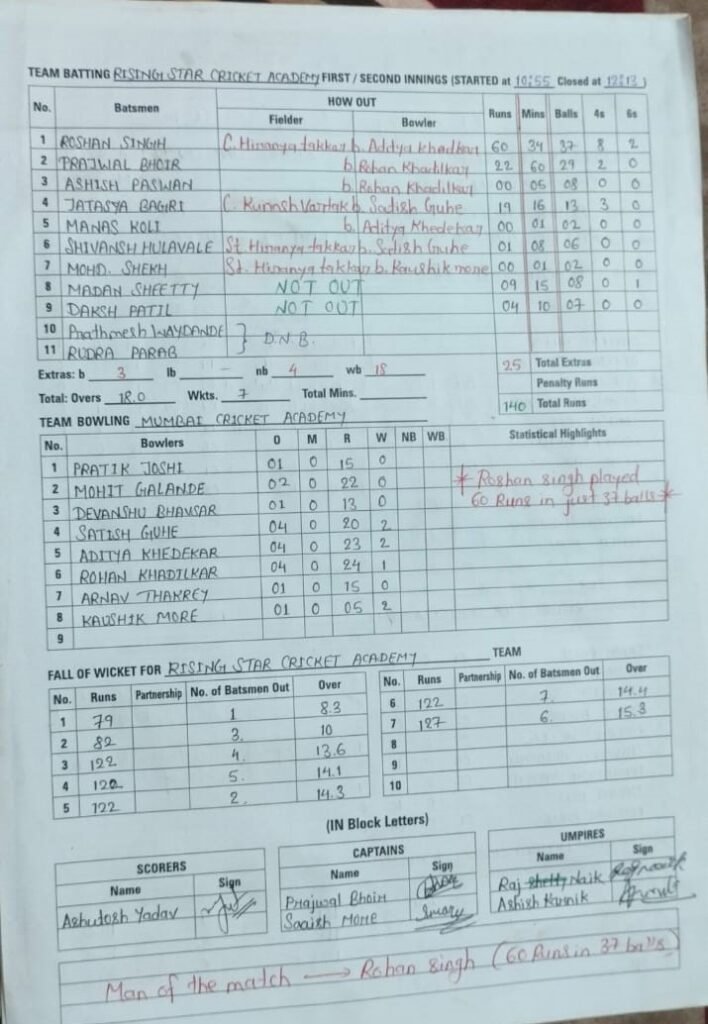 TEAM BATTING RISING STAR CRICKET ACADEMY FIRST / SECOND INNINGS (STARTED at 10:55 Closed at 12:13)
No. Batsmen HOW OUT Runs Mins Balls 4s 6s
Fielder Bowler
1 ROSHAN SINGH C. Hiranya takkar b. Aditya Khadkar 60 34 37 8 2
2 PRAJWAL BHOIR b. Rohan Khadilkar 22 60 29 2 0
3 ASHISH PASWAN b. Rohan Khadilkar 00 05 08 0 0
4 JATASYA BAGRI C. Kurnsh Vartak b. Satish Guhe 19 16 13 3 0
5 MANAS KOLI b. Aditya Khedekar 00 01 02 0 0
6 SHIVANSH HULAVALE St. Hiranya takkar b. Satish Guhe 01 08 06 0 0
7 MOHD. SHEKH St. Hiranya takkar b. Kaushik more 00 01 02 0 0
8 MADAN SHEETTY NOT OUT 09 15 08 0 1
9 DAKSH PATIL NOT OUT 04 10 07 0 0
10 Prathmesh WAYDANDE } D.N.B.
11 RUDRA PARAB
Extras: b 3 lb — nb 4 wb 18 25 Total Extras
Penalty Runs
Total: Overs 18.0 Wkts. 7 Total Mins. 140 Total Runs
TEAM BOWLING MUMBAI CRICKET ACADEMY
No. Bowlers O M R W NB WB Statistical Highlights
1 PRATIK JOSHI 01 0 15 0
2 MOHIT GALANDE 02 0 22 0 * Roshan singh played
3 DEVANSHU BHAVSAR 01 0 13 0 60 Runs in just 37 balls *
4 SATISH GUHE 04 0 20 2
5 ADITYA KHEDEKAR 04 0 23 2
6 ROHAN KHADILKAR 04 0 24 1
7 ARNAV THAKREY 01 0 15 0
8 KAUSHIK MORE 01 0 05 2
9
FALL OF WICKET FOR RISING STAR CRICKET ACADEMY TEAM
No. Runs Partnership No. of Batsmen Out Over No. Runs Partnership No. of Batsmen Out Over
1 79 1 8.3 6 122 7. 14.4
2 82 3. 10 7 127 6. 15.3
3 122 4. 13.6 8
4 122 5. 14.1 9
5 122 2. 14.3 10
(IN Block Letters)
SCORERS CAPTAINS UMPIRES
Name Sign Name Sign Name Sign
Ashutosh Yadav Prajwal Bhoir Raj shetty Naik
Saaish More Ashish Karnik
Man of the match → Rohan singh (60 Runs in 37 balls)